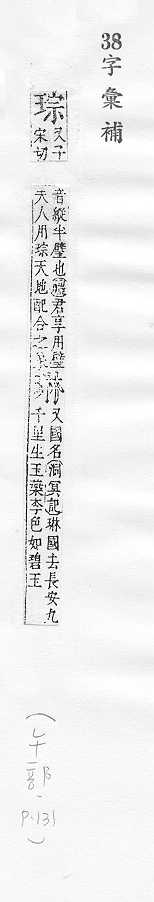 38字彙補
琮
又子
宋切
音縱半璧也禮君享用璧
夫人用琮天地配合之
琳
又國名洞冥記琳國去長安九
千里生玉葉李色如碧玉
部
P.131